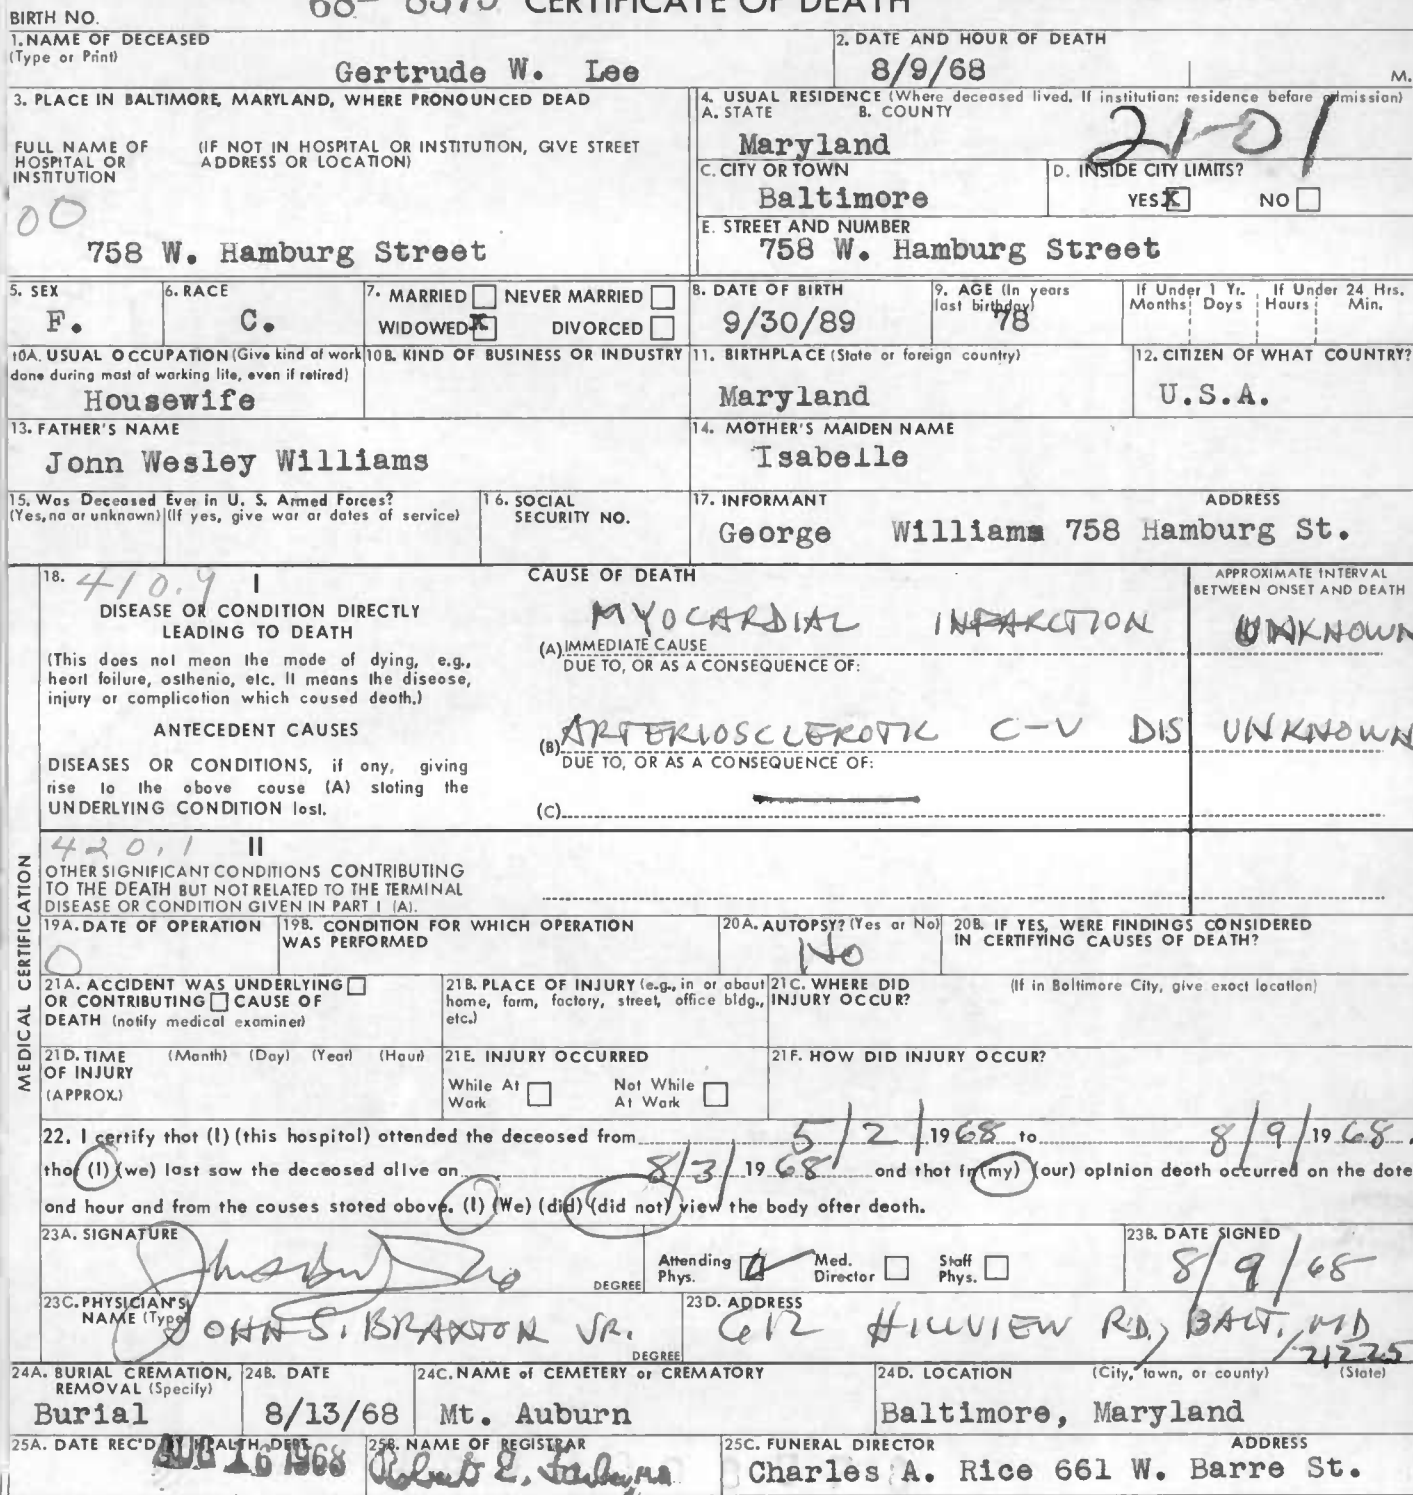 68- 8375 CERTIFICATE OF DEATH
BIRTH NO.
1. NAME OF DECEASED
(Type or Print)
Gertrude W. Lee
2. DATE AND HOUR OF DEATH
8/9/68
M.
3. PLACE IN BALTIMORE, MARYLAND, WHERE PRONOUNCED DEAD
FULL NAME OF HOSPITAL OR INSTITUTION
(IF NOT IN HOSPITAL OR INSTITUTION, GIVE STREET ADDRESS OR LOCATION)
00
758 W. Hamburg Street
4. USUAL RESIDENCE (Where deceased lived. If institution: residence before admission)
A. STATE B. COUNTY
Maryland
21-01
C. CITY OR TOWN
Baltimore
D. INSIDE CITY LIMITS?
YES X NO
E. STREET AND NUMBER
758 W. Hamburg Street
5. SEX
F.
6. RACE
C.
7. MARRIED NEVER MARRIED
WIDOWED X DIVORCED
8. DATE OF BIRTH
9/30/89
9. AGE (In years last birthday)
78
If Under 1 Yr. If Under 24 Hrs.
Months Days Hours Min.
10A. USUAL OCCUPATION (Give kind of work done during most of working life, even if retired)
Housewife
10B. KIND OF BUSINESS OR INDUSTRY
11. BIRTHPLACE (State or foreign country)
Maryland
12. CITIZEN OF WHAT COUNTRY?
U.S.A.
13. FATHER'S NAME
John Wesley Williams
14. MOTHER'S MAIDEN NAME
Isabelle
15. Was Deceased Ever in U. S. Armed Forces?
(Yes, no or unknown) (If yes, give war or dates of service)
16. SOCIAL SECURITY NO.
17. INFORMANT ADDRESS
George Williams 758 Hamburg St.
MEDICAL CERTIFICATION
18. 410.9 I
DISEASE OR CONDITION DIRECTLY
LEADING TO DEATH
(This does not mean the mode of dying, e.g.,
heart failure, asthenia, etc. It means the disease,
injury or complication which caused death.)
ANTECEDENT CAUSES
DISEASES OR CONDITIONS, if any, giving
rise to the above cause (A) stating the
UNDERLYING CONDITION last.
CAUSE OF DEATH
APPROXIMATE INTERVAL
BETWEEN ONSET AND DEATH
MYOCARDIAL INFARCTION UNKNOWN
(A) IMMEDIATE CAUSE
DUE TO, OR AS A CONSEQUENCE OF:
(B) ARTERIOSCLEROTIC C-V DIS UNKNOWN
DUE TO, OR AS A CONSEQUENCE OF:
(C)
420.1 II
OTHER SIGNIFICANT CONDITIONS CONTRIBUTING
TO THE DEATH BUT NOT RELATED TO THE TERMINAL
DISEASE OR CONDITION GIVEN IN PART I (A).
19A. DATE OF OPERATION
0
19B. CONDITION FOR WHICH OPERATION
WAS PERFORMED
20A. AUTOPSY? (Yes or No)
No
20B. IF YES, WERE FINDINGS CONSIDERED
IN CERTIFYING CAUSES OF DEATH?
21A. ACCIDENT WAS UNDERLYING
OR CONTRIBUTING CAUSE OF
DEATH (notify medical examiner)
21B. PLACE OF INJURY (e.g., in or about
home, farm, factory, street, office bldg.,
etc.)
21C. WHERE DID
INJURY OCCUR?
(If in Baltimore City, give exact location)
21D. TIME (Month) (Day) (Year) (Hour)
OF INJURY
(APPROX.)
21E. INJURY OCCURRED
While At Work Not While At Work
21F. HOW DID INJURY OCCUR?
22. I certify that (I) (this hospital) attended the deceased from 5/2/1968 to 8/9/1968.
that (I) (we) last saw the deceased alive on 8/3/1968 and that in (my) (our) opinion death occurred on the date
and hour and from the causes stated above. (I) (We) (did) (did not) view the body after death.
23A. SIGNATURE
DEGREE
Attending Phys. Med. Director Staff Phys.
23B. DATE SIGNED
8/9/68
23C. PHYSICIAN'S
NAME (Type)
JOHN S. BRAXTON JR.
DEGREE
23D. ADDRESS
612 HILLVIEW RD, BALT, MD
21225
24A. BURIAL CREMATION,
REMOVAL (Specify)
Burial
24B. DATE
8/13/68
24C. NAME of CEMETERY or CREMATORY
Mt. Auburn
24D. LOCATION (City, town, or county) (State)
Baltimore, Maryland
25A. DATE REC'D BY HEALTH DEPT.
AUG 16 1968
25B. NAME OF REGISTRAR
Robert E. Farber
25C. FUNERAL DIRECTOR ADDRESS
Charles A. Rice 661 W. Barre St.